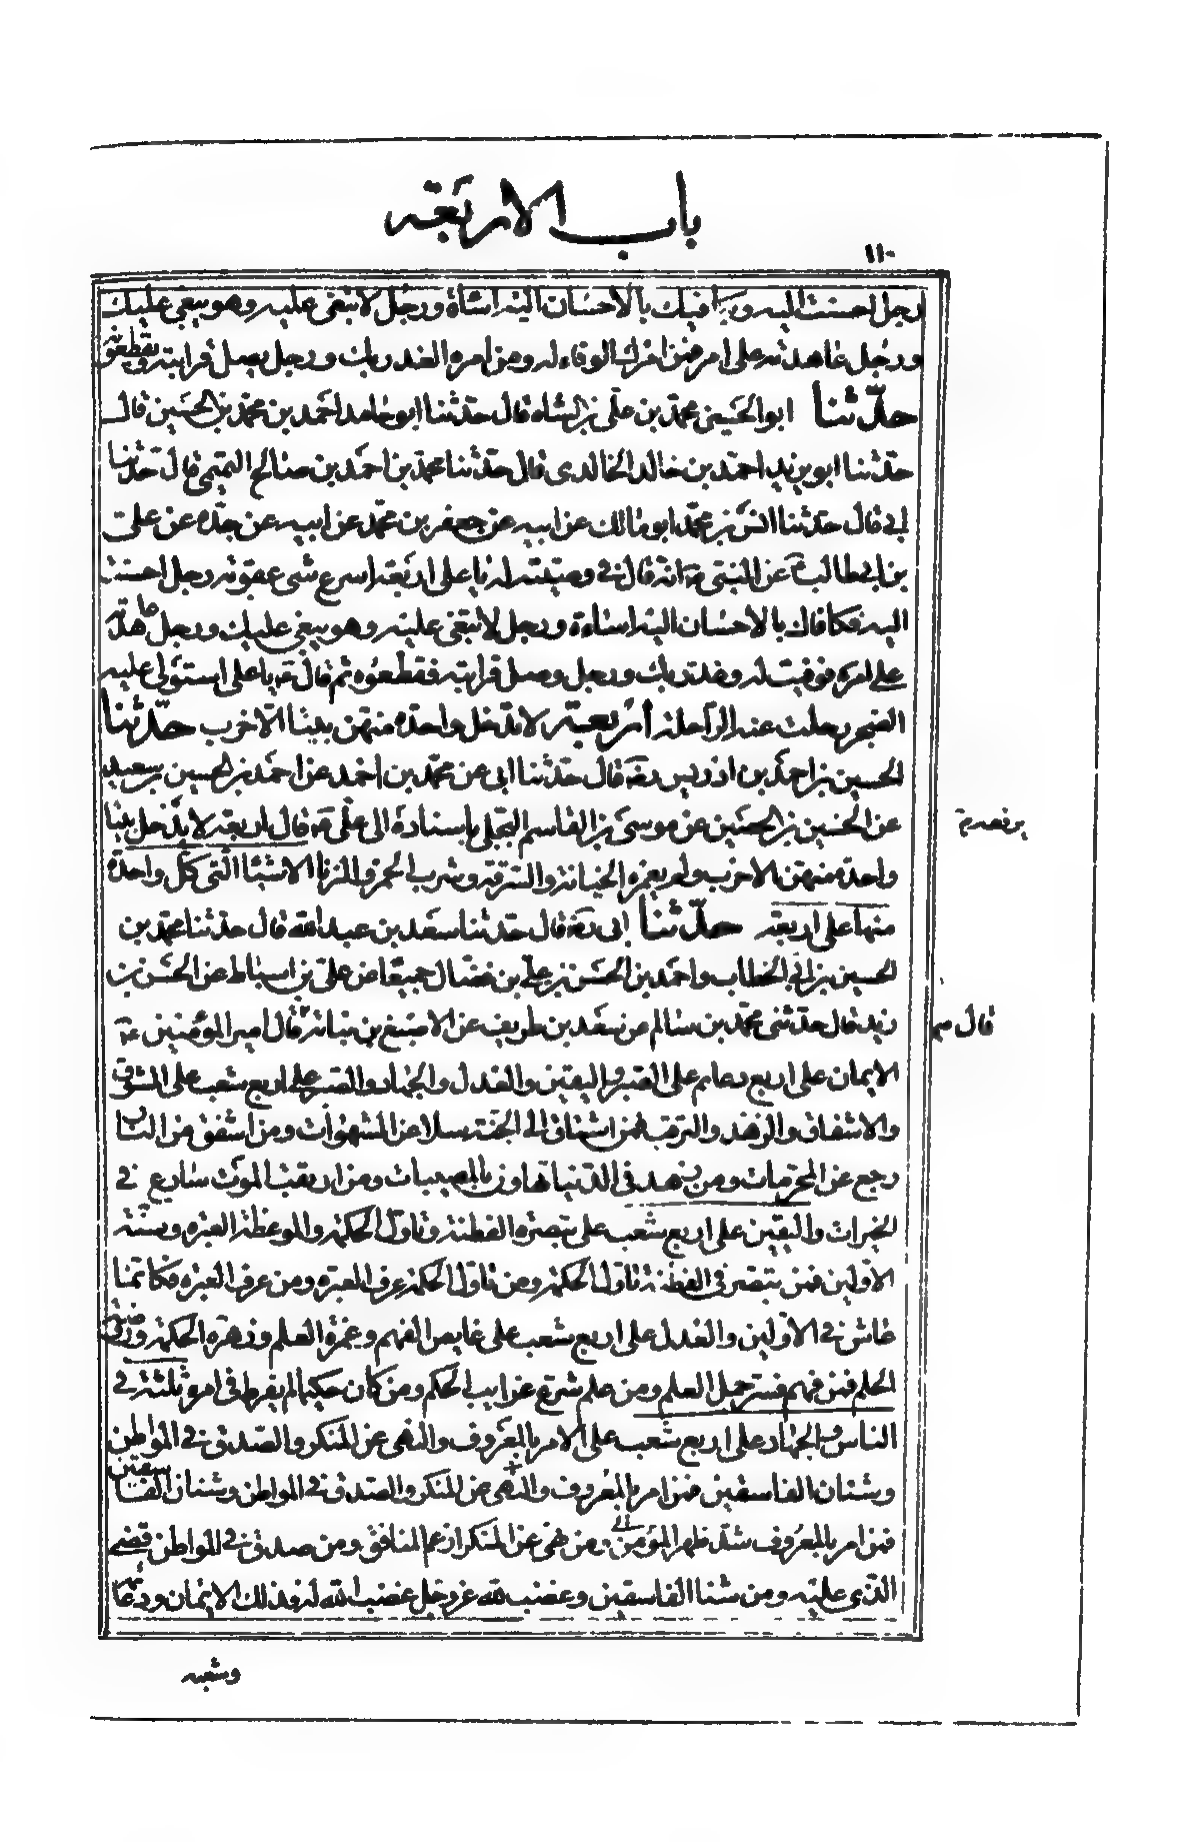 باب الاربعة
١١٠
رجل احسنت اليه ويكافيك بالاحسان اليه اساءة ورجل لا تبغى عليه وهو يبغى عليك
ورجل عاهدته على امر فمن امرك الوفاء له ومن امره الغدر بك ورجل يصل قرابته ويقطعونه
حدّثنا ابو الحسين محمد بن على بن الشاه قال حدثنا ابو حامد احمد بن محمد بن الحسين قال
حدثنا ابو يزيد احمد بن خالد الخالدى قال حدثنا محمد بن احمد بن صالح التميمى قال حدثنا
ابى قال حدثنا انس بن محمد ابو مالك عن ابيه عن جعفر بن محمد عن ابيه عن جده عن على
بن ابى طالب ع عن النبى ص انه قال فى وصيته له يا على اربعة اسرع شى عقوبة رجل احسنت
اليه فكافاك بالاحسان اليه اساءة ورجل لا تبغى عليه وهو يبغى عليك ورجل عاهدته
على امره فوفيت له وغدر بك ورجل وصل قرابته فقطعوه ثم قال ع يا على من استولى عليه
الضجر رحلت عنه الراحة اربعة لا تدخل واحدة منهن بيتا الا خرب حدّثنا
الحسين بن احمد بن ادريس رضه قال حدثنا ابى عن محمد بن احمد عن احمد بن الحسين بن سعيد
عن الحسين بن الحصين عن موسى بن القاسم البجلى باسناده الى على ع قال اربعة لا يدخل بيتا
واحدة منهن الا خرب ولم يعمره الخيانة والسرقة وشرب الخمر والزنا الاشيئا التى كل واحدة
منها على اربعة حدّثنا ابى رضه قال حدثنا سعد بن عبد الله قال حدثنا محمد بن
الحسين بن ابى الخطاب واحمد بن الحسن بن على بن فضال جميعا عن على بن اسباط عن الحسن بن
زيد قال حدثنى محمد بن سالم عن سعد بن طريف عن الاصبغ بن نباتة قال قال امير المؤمنين ع
الايمان على اربع دعايم على الصبر واليقين والعدل والجهاد والصبر على اربع شعب على الشوق
والاشفاق والزهد والترقب فمن اشتاق الى الجنة سلا عن الشهوات ومن اشفق من النار
رجع عن المحرمات ومن زهد فى الدنيا تهاون بالمصيبات ومن ارتقب الموت سارع فى
الخيرات واليقين على اربع شعب على تبصرة الفطنة وتاول الحكمة والموعظة العبرة وسنة
الاولين فمن تبصر فى الفطنة تاول الحكمة ومن تاول الحكمة عرف العبرة ومن عرف العبرة فكانما
عاش فى الاولين والعدل على اربع شعب على غايص الفهم وغمرة العلم وزهرة الحكمة وروضة
الحلم فمن فهم فسر جمل العلم ومن علم شرع غرايب الحكم ومن كان حكيما لم يفرط فى امر يلبثه فى
الناس والجهاد على اربع شعب على الامر بالمعروف والنهى عن المنكر والصدق فى المواطن
وشنان الفاسقين فمن امر بالمعروف والنهى عن المنكر والصدق فى المواطن وشنان الفاسقين
فمن امر بالمعروف شد ظهر المؤمن ومن نهى عن المنكر ارغم المنافق ومن صدق فى المواطن قضى
الذى عليه ومن شنا الفاسقين وغضب لله عز وجل غضب الله له فذلك الايمان ودعائمه
وشعبه
قال صح